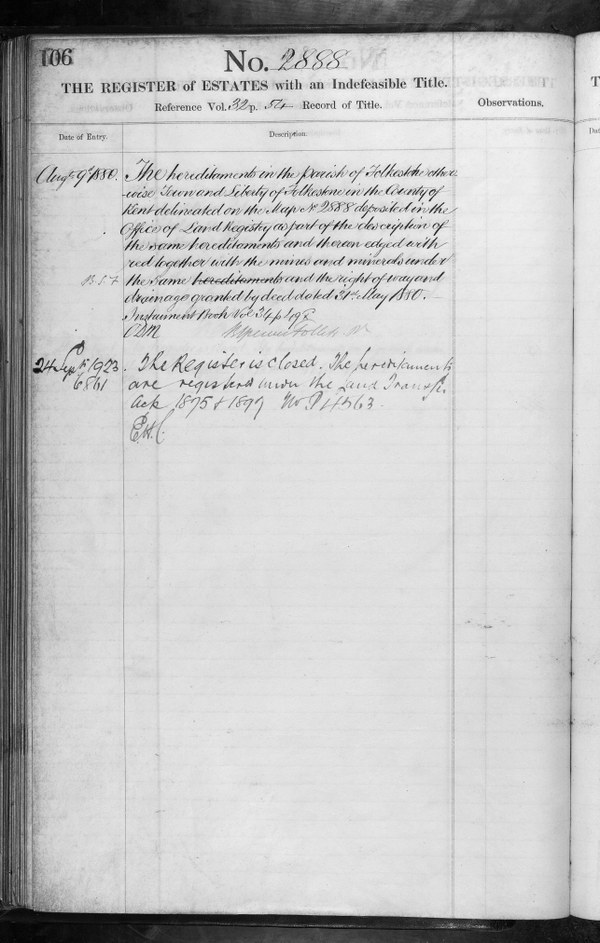 106
No. 2888
THE REGISTER of ESTATES with an Indefeasible Title.
Reference Vol. 32 p. 54 Record of Title.
Observations.
Date of Entry.
Description.
Augt. 9th 1880.
The hereditaments in the parish of Folkestone other
-wise Town and Liberty of Folkestone in the County of
Kent delineated on the Map No 2888 deposited in the
Office of Land Registry as part of the description of
the same hereditaments and thereon edged with
red together with the mines and minerals under
the same hereditaments and the right of way and
drainage granted by deed dated 31st May 1880.
Instrument Book Vol 34 p
24 Sept 1923
6861
The Register is closed. The hereditaments
are registered under the Land Transfer
Acts 1875 & 1897 No. P4563.